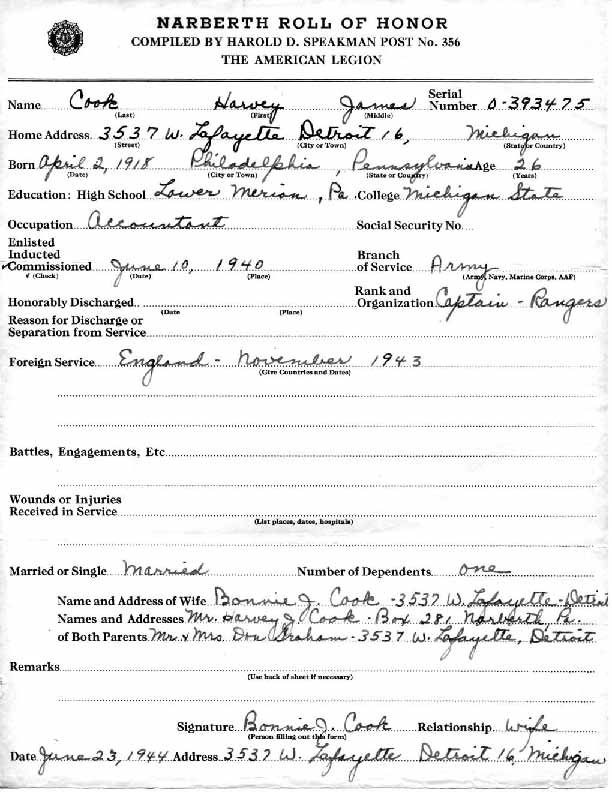 NARBERTH ROLL OF HONOR
COMPILED BY HAROLD D. SPEAKMAN POST No. 356
THE AMERICAN LEGION
Name Cook Harvey James Serial Number O-393475
(Last) (First) (Middle)
Home Address 3537 W. Lafayette Detroit 16, Michigan
(Street) (City or Town) (State or Country)
Born April 2, 1918 Philadelphia, Pennsylvania Age 26
(Date) (City or Town) (State or Country) (Years)
Education: High School Lower Merion, Pa. College Michigan State
Occupation Accountant Social Security No.
Enlisted
Inducted
✓Commissioned June 10, 1940 Branch of Service Army
✓ (Check) (Date) (Place) (Army, Navy, Marine Corps, AAF)
Honorably Discharged Rank and Organization Captain - Rangers
(Date (Place)
Reason for Discharge or
Separation from Service
Foreign Service England - November 1943
(Give Countries and Dates)
Battles, Engagements, Etc.
Wounds or Injuries
Received in Service
(List places, dates, hospitals)
Married or Single Married Number of Dependents one
Name and Address of Wife Bonnie J. Cook - 3537 W. Lafayette - Detroit
Names and Addresses Mr. Harvey J Cook - Box 281, Narberth, Pa.
of Both Parents Mr. & Mrs. Don Graham - 3537 W. Lafayette, Detroit
Remarks
(Use back of sheet if necessary)
Signature Bonnie J. Cook Relationship wife
(Person filling out this form)
Date June 23, 1944 Address 3537 W. Lafayette Detroit 16, Michigan